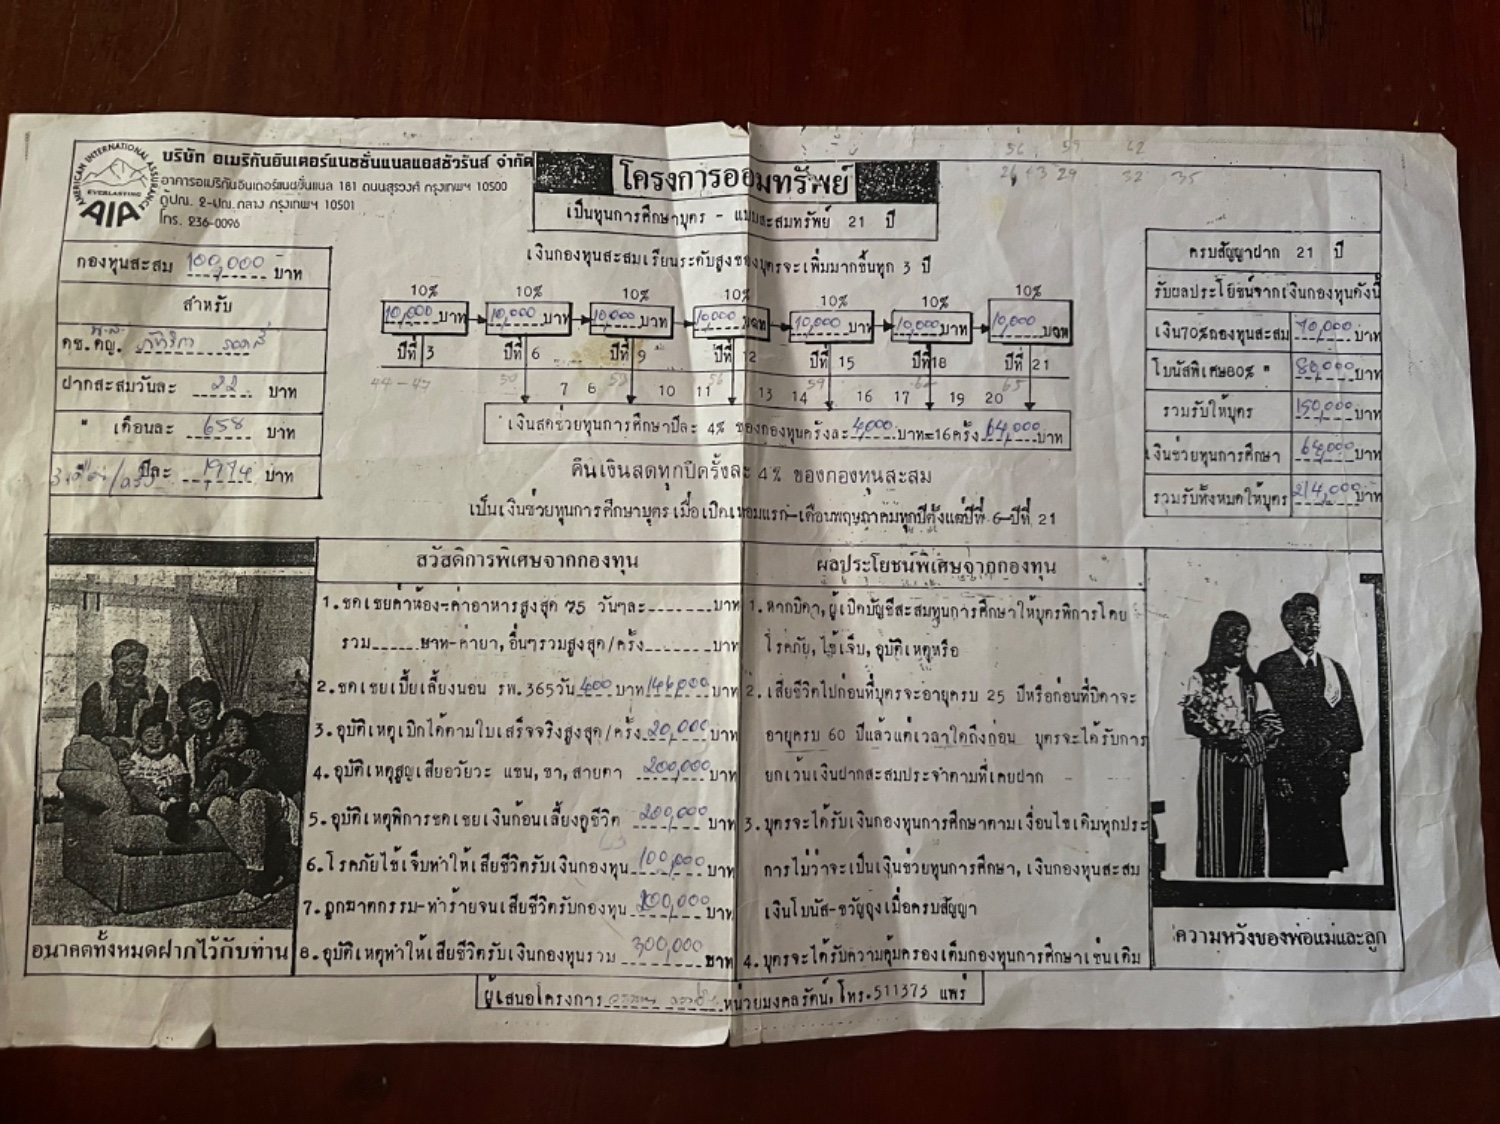 AMERICAN INTERNATIONAL ASSURANCE
EVERLASTING
AIA
บริษัท อเมริกันอินเตอร์แนชชั่นแนลแอสชัวรันส์ จำกัด
อาคารอเมริกันอินเตอร์แนชั่นแนล 181 ถนนสุรวงศ์ กรุงเทพฯ 10500
ตู้ปณ. 2-ปณ.กลาง กรุงเทพฯ 10501
โทร. 236-0096
โครงการออมทรัพย์
เป็นทุนการศึกษาบุตร - แบบสะสมทรัพย์ 21 ปี
56 59 62
26 + 3 29 32 35
กองทุนสะสม 100,000 บาท
สำหรับ
ด.ช. ด.ญ.
ฝากสะสมวันละ 22 บาท
" เดือนละ 658 บาท
ปีละ 1974 บาท
เงินกองทุนสะสมเรียนระดับสูงของบุตรจะเพิ่มมากขึ้นทุก 3 ปี
10% 10% 10% 10% 10% 10% 10%
10,000 บาท 10,000 บาท 10,000 บาท 10,000 บาท 10,000 บาท 10,000 บาท 10,000 บาท
ปีที่ 3 ปีที่ 6 ปีที่ 9 ปีที่ 12 ปีที่ 15 ปีที่ 18 ปีที่ 21
44 - 47 50 53 56 59 62 65
7 8 10 11 13 14 16 17 19 20
เงินสดช่วยทุนการศึกษาปีละ 4% ของกองทุนครั้งละ 4,000 บาท=16ครั้ง 64,000 บาท
คืนเงินสดทุกปีครั้งละ 4% ของกองทุนสะสม
เป็นเงินช่วยทุนการศึกษาบุตรเมื่อเปิดเทอมแรก-เดือนพฤษภาคมทุกปีตั้งแต่ปีที่ 6-ปีที่ 21
ครบสัญญาฝาก 21 ปี
รับผลประโยชน์จากเงินกองทุนดังนี้
เงิน70%กองทุนสะสม 70,000 บาท
โบนัสพิเศษ80% " 80,000 บาท
รวมรับให้บุตร 150,000 บาท
เงินช่วยทุนการศึกษา 64,000 บาท
รวมรับทั้งหมดให้บุตร 214,000 บาท
สวัสดิการพิเศษจากกองทุน
1. ชดเชยค่าห้อง-ค่าอาหารสูงสุด 75 วันๆละ บาท
รวม บาท-ค่ายา, อื่นๆรวมสูงสุด/ครั้ง บาท
2. ชดเชยเบี้ยเลี้ยงนอน รพ. 365วัน 400 บาท 146,000 บาท
3. อุบัติเหตุเบิกได้ตามใบเสร็จจริงสูงสุด/ครั้ง 20,000 บาท
4. อุบัติเหตุสูญเสียอวัยวะ แขน, ขา, สายตา 200,000 บาท
5. อุบัติเหตุพิการชดเชยเงินก้อนเลี้ยงดูชีวิต 200,000 บาท
6. โรคภัยไข้เจ็บทำให้เสียชีวิตรับเงินกองทุน 100,000 บาท
7. ถูกฆาตกรรม-ทำร้ายจนเสียชีวิตรับกองทุน 200,000 บาท
8. อุบัติเหตุทำให้เสียชีวิตรับเงินกองทุนรวม 300,000 บาท
ผลประโยชน์พิเศษจากกองทุน
1. หากบิดา, ผู้เปิดบัญชีสะสมทุนการศึกษาให้บุตรพิการโดย
โรคภัย, ไข้เจ็บ, อุบัติเหตุหรือ
2. เสียชีวิตไปก่อนที่บุตรจะอายุครบ 25 ปีหรือก่อนที่บิดาจะ
อายุครบ 60 ปีแล้วแต่เวลาใดถึงก่อน บุตรจะได้รับการ
ยกเว้นเงินฝากสะสมประจำตามที่เคยฝาก
3. บุตรจะได้รับเงินกองทุนการศึกษาตามเงื่อนไขเดิมทุกประ
การไม่ว่าจะเป็นเงินช่วยทุนการศึกษา, เงินกองทุนสะสม
เงินโบนัส-ขวัญถุงเมื่อครบสัญญา
4. บุตรจะได้รับความคุ้มครองเต็มกองทุนการศึกษาเช่นเดิม
อนาคตทั้งหมดฝากไว้กับท่าน
ความหวังของพ่อแม่และลูก
ผู้เสนอโครงการ หน่วยมงคลรัตน์. โทร.511373 แพร่